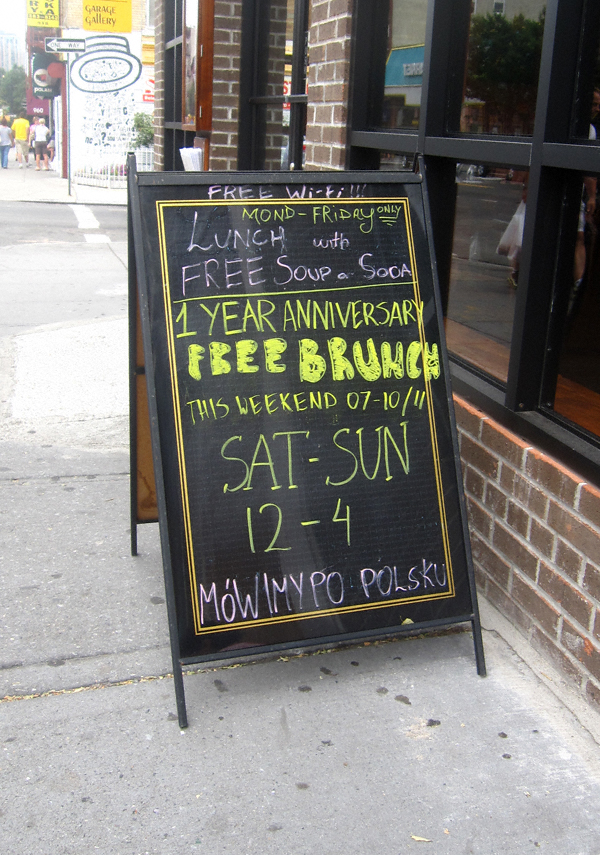 GARAGE
GALLERY
ONE WAY
FREE Wi-Fi!!!
MOND-FRIDAY ONLY
LUNCH with
FREE SOUP or SODA
1 YEAR ANNIVERSARY
FREE BRUNCH
THIS WEEKEND 07-10/11
SAT-SUN
12-4
MÓWIMY PO POLSKU